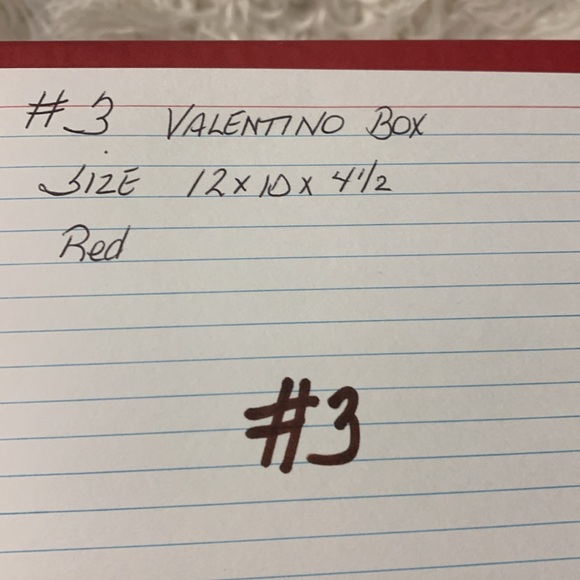 #3 VALENTINO BOX
SIZE 12 x 10 x 4 1/2
Red
#3